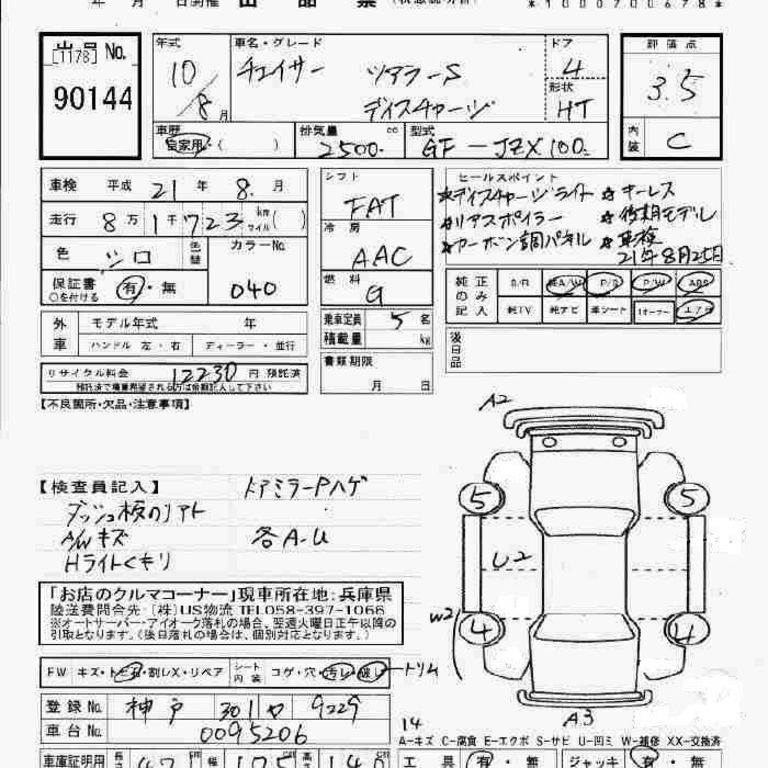 年 月 日開催 出 品 票 (状態説明書) *1000700678*
出品 No.
[1178]
90144
年式
10/8月
車名・グレード
チェイサー ツアラーS
ディスチャージ
ドア
4
形状
HT
評価点
3.5
内装 C
車歴
自家用・( )
排気量 cc
2500
型式
GF-JZX100
車検 平成 21年 8月
走行 8万1千723km マイル( )
色 シロ 色替 カラーNo. 040
保証書 有・無
○を付ける
外車 モデル年式 年
ハンドル 左・右 ディーラー・並行
リサイクル料金 12230円 預託済
【不良箇所・欠品・注意事項】
シフト
FAT
冷房
AAC
燃料
G
乗車定員 5名
積載量 kg
書類期限
月 日
セールスポイント
★ディスチャージライト ★キーレス
★リアスポイラー ★後期モデル
★カーボン調パネル ★車検
21年8月25日
純正のみ記入 S/R 純A/W P/S P/W ABS
純TV 純ナビ 革シート 1オーナー エアB
後日品
【検査員記入】 ドアミラーPハゲ
A/Wキズ 各A-U
Hライトクモリ
「お店のクルマコーナー」現車所在地:兵庫県
陸送費問合先:[株]US物流 TEL058-397-1066
※オートサーバー・アイオーク落札の場合、翌週火曜日正午以降の
引取となります。(後日落札の場合は、個別対応となります。)
FW キズ・トビ石・割レX・リペア シート内装 コゲ・穴・汚レ・破レ トリム
登録No. 神戸 301 9229
車台No. 0095206
A2
5 5
U2
W2
4 4
A3
14
A-キズ C-腐食 E-エクボ S-サビ U-凹ミ W-補修 XX-交換済
車庫証明用 長さ 471cm 幅 175cm 高さ 140cm
工具 有・無 ジャッキ 有・無